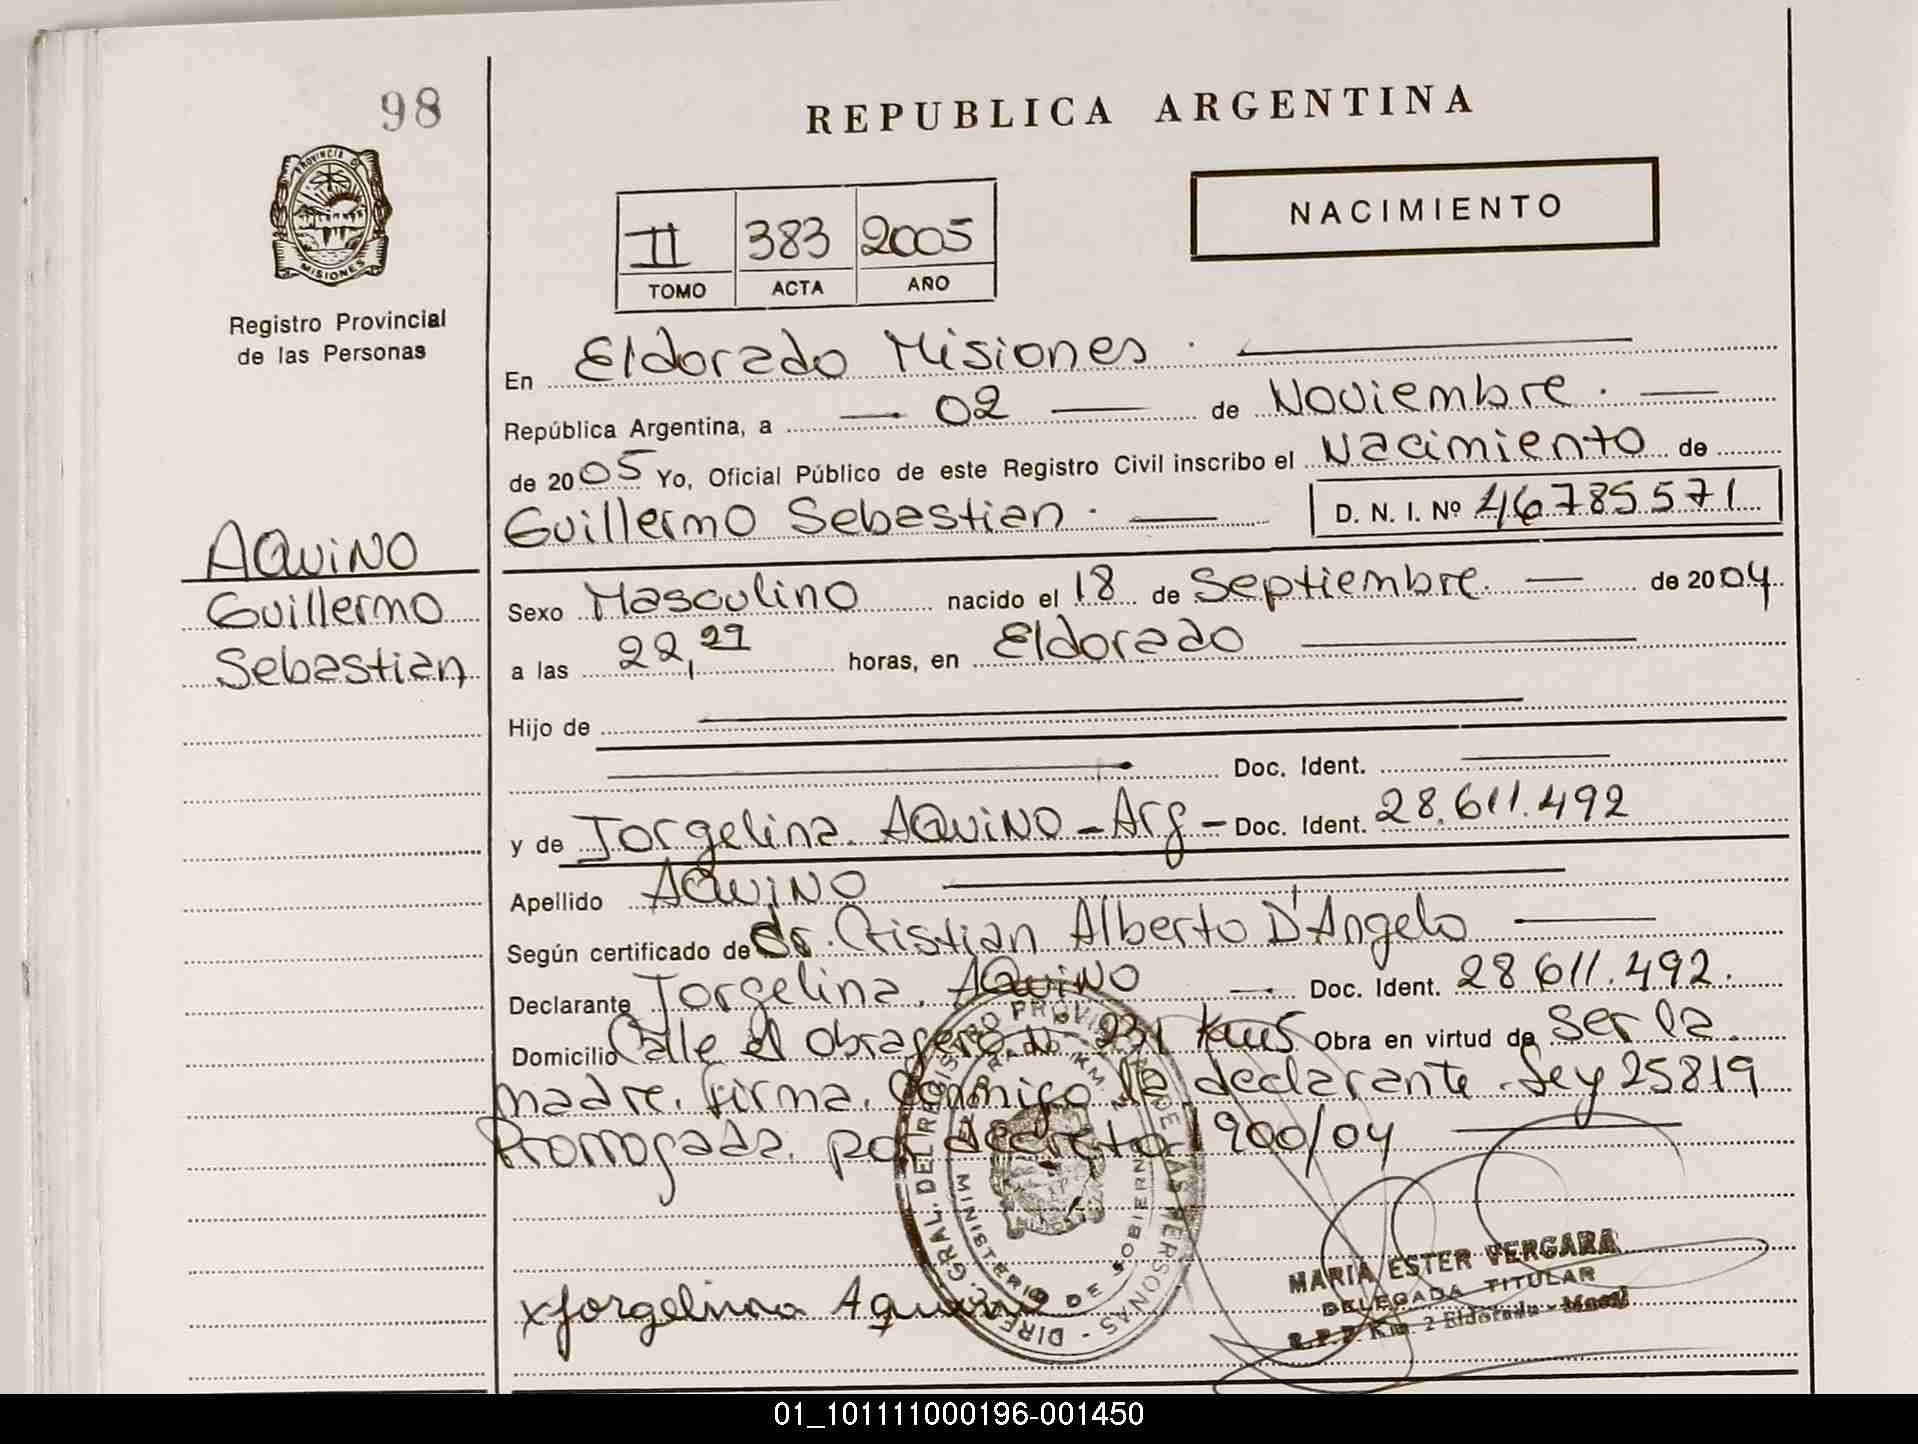 98
REPUBLICA ARGENTINA
PROVINCIA DE MISIONES
Registro Provincial
de las Personas
II 383 2005
TOMO ACTA AÑO
NACIMIENTO
En Eldorado Misiones.
República Argentina, a 02 de Noviembre.
de 2005 Yo, Oficial Público de este Registro Civil inscribo el Nacimiento de
Guillermo Sebastian. D. N. I. Nº 46785571
AQuiNO
Guillermo
Sebastian
Sexo Masculino nacido el 18 de Septiembre. de 2004
a las 22,29 horas, en Eldorado
Hijo de
Doc. Ident.
y de Jorgelina. AQuiNO - Arg - Doc. Ident. 28.611.492
Apellido AQuiNO
Según certificado de dr. Cristian Alberto D'Angelo
Declarante Jorgelina. AQuiNO Doc. Ident. 28 611.492.
Domicilio Calle el Obragero 231 Obra en virtud de Ser la
madre. firma. Conmigo la declarante. Ley 25819
Prorrogada. por decreto 1900/04
xJorgelina Aquino
DIREC. GRAL. DEL REGISTRO PROVINCIAL DE LAS PERSONAS
MINISTERIO DE GOBIERNO
MARIA ESTER VERGARA
DELEGADA TITULAR
R.P.P. Km. 2 Eldorado
01_101111000196-001450